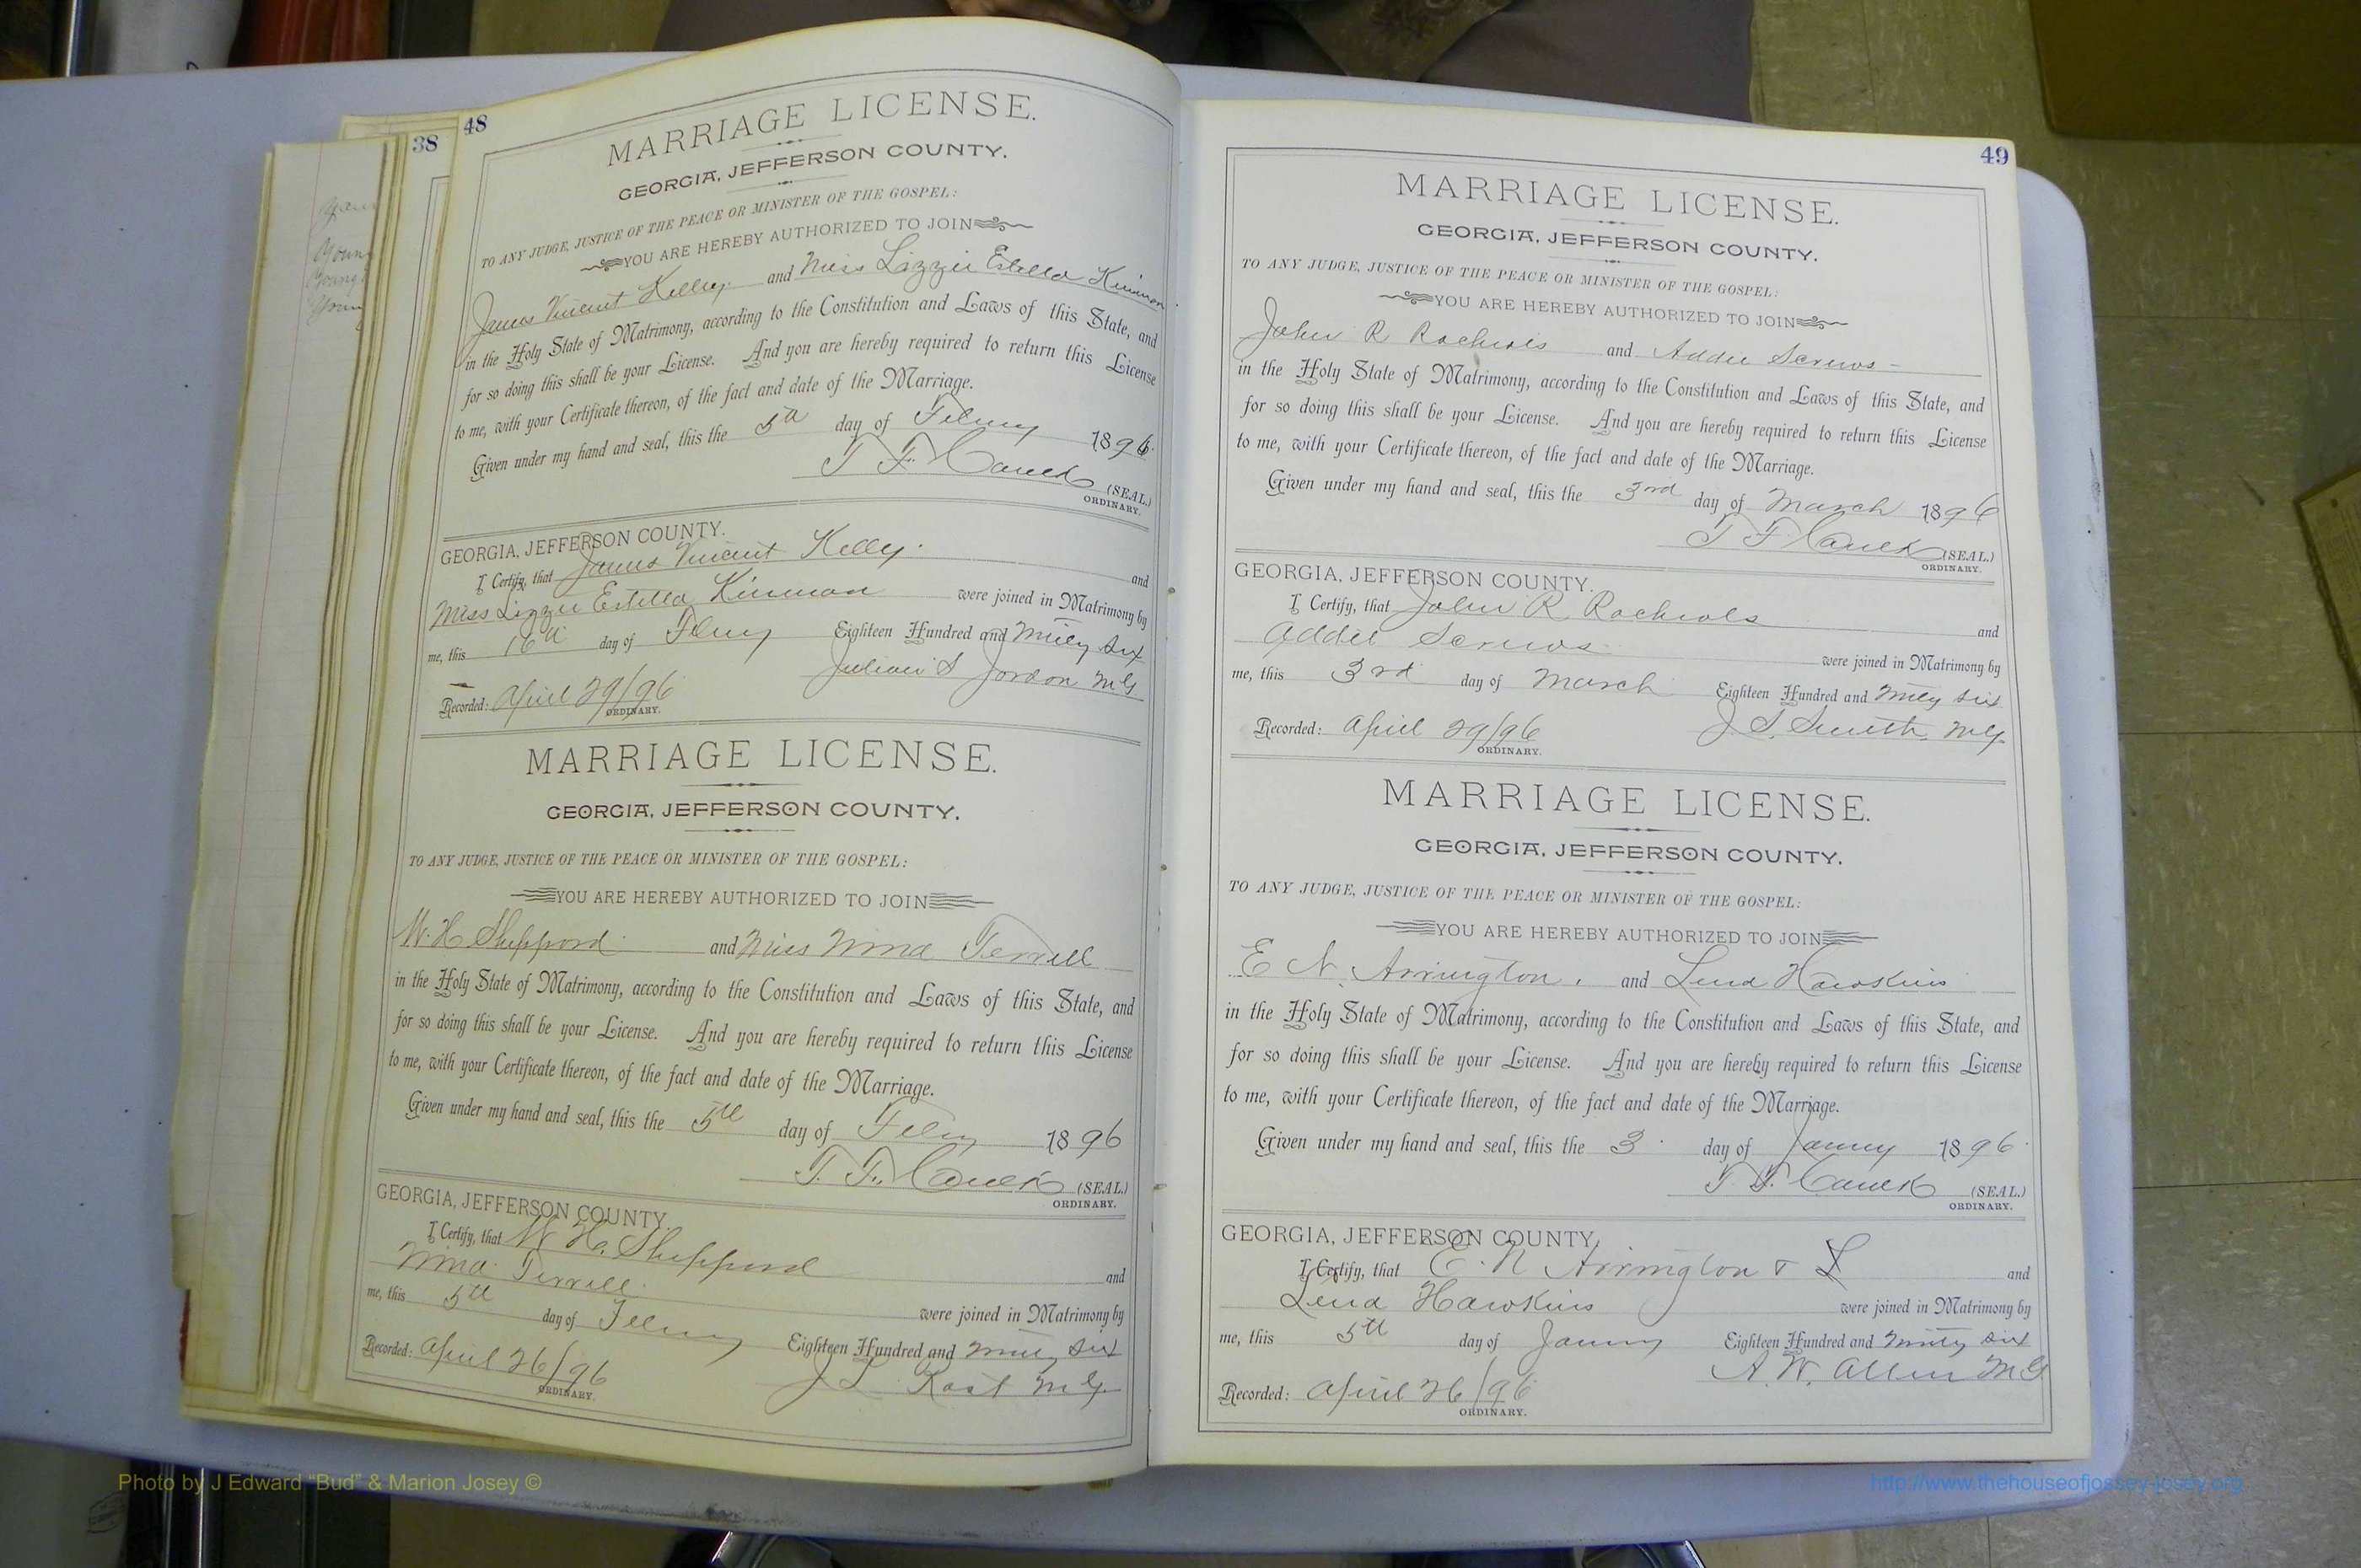 38
48
MARRIAGE LICENSE.
GEORGIA, JEFFERSON COUNTY.
TO ANY JUDGE, JUSTICE OF THE PEACE OR MINISTER OF THE GOSPEL:
YOU ARE HEREBY AUTHORIZED TO JOIN
James Vincent Kelley and Miss Lizzie Estella Kinman
in the Holy State of Matrimony, according to the Constitution and Laws of this State, and
for so doing this shall be your License. And you are hereby required to return this License
to me, with your Certificate thereon, of the fact and date of the Marriage.
Given under my hand and seal, this the 5th day of Febury 1896.
T F Caulk (SEAL.)
ORDINARY.
GEORGIA, JEFFERSON COUNTY.
I Certify, that James Vincent Kelley. and
Miss Lizzie Estella Kinman were joined in Matrimony by
me, this 16th day of Febuy Eighteen Hundred and Ninety Six
Julian S Jordon M G.
Recorded: April 29/96
ORDINARY.
MARRIAGE LICENSE.
GEORGIA, JEFFERSON COUNTY.
TO ANY JUDGE, JUSTICE OF THE PEACE OR MINISTER OF THE GOSPEL:
YOU ARE HEREBY AUTHORIZED TO JOIN
W. H Sheppord and Miss Nina Terrell
in the Holy State of Matrimony, according to the Constitution and Laws of this State, and
for so doing this shall be your License. And you are hereby required to return this License
to me, with your Certificate thereon, of the fact and date of the Marriage.
Given under my hand and seal, this the 5th day of Febuy 1896
T. F. Caulk (SEAL.)
ORDINARY.
GEORGIA, JEFFERSON COUNTY.
I Certify, that W H. Sheppord
Nina Terrell. and
were joined in Matrimony by
me, this 5th day of Febuy Eighteen Hundred and Ninety Six
J L M G.
Recorded: April 26/96
ORDINARY.
49
MARRIAGE LICENSE.
GEORGIA, JEFFERSON COUNTY.
TO ANY JUDGE, JUSTICE OF THE PEACE OR MINISTER OF THE GOSPEL:
YOU ARE HEREBY AUTHORIZED TO JOIN
John R and Addie Screws
in the Holy State of Matrimony, according to the Constitution and Laws of this State, and
for so doing this shall be your License. And you are hereby required to return this License
to me, with your Certificate thereon, of the fact and date of the Marriage.
Given under my hand and seal, this the 3rd day of March 1896
T F Caulk (SEAL.)
ORDINARY.
GEORGIA, JEFFERSON COUNTY.
I Certify, that John R. and
Addie Screws were joined in Matrimony by
me, this 3rd day of March Eighteen Hundred and Ninety Six
J S. Smith. M G.
Recorded: April 29/96
ORDINARY.
MARRIAGE LICENSE.
GEORGIA, JEFFERSON COUNTY.
TO ANY JUDGE, JUSTICE OF THE PEACE OR MINISTER OF THE GOSPEL:
YOU ARE HEREBY AUTHORIZED TO JOIN
E N. Arrington. and Lena Hawskins
in the Holy State of Matrimony, according to the Constitution and Laws of this State, and
for so doing this shall be your License. And you are hereby required to return this License
to me, with your Certificate thereon, of the fact and date of the Marriage.
Given under my hand and seal, this the 3 day of Janury 1896.
T. F. Caulk (SEAL.)
ORDINARY.
GEORGIA, JEFFERSON COUNTY,
I Certify, that E. N Arrington & L and
Lena Hawskins were joined in Matrimony by
me, this 5th day of Janury Eighteen Hundred and Ninety Six
A. W. Allen M G
Recorded: April 26/96
ORDINARY.
Photo by J Edward "Bud" & Marion Josey ©
http://www.thehouseofjossey-josey.org